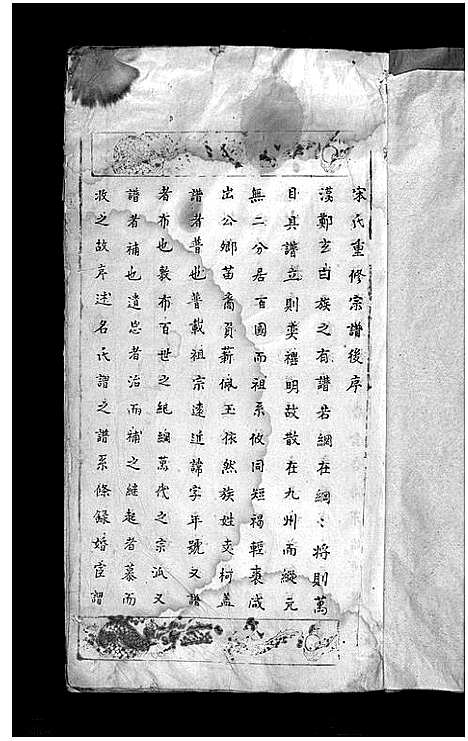 宋氏重修宗譜後序
漢鄭玄曰族之有譜若網在綱〻將則萬
目具譜立則彛禮明故散在九州而縱元
無二分居百國而祖系攸同短褐輕裘咸
出公鄉苗裔負薪佩玉依然族姓支柯蓋
譜者普也普載祖宗遠近諱字年號又譜
者布也敷布百世之紀綱萬代之宗派又
譜者補也遺忘者治而補之繼起者慕而
收之故序述名氏謂之譜系條錄婚宦謂